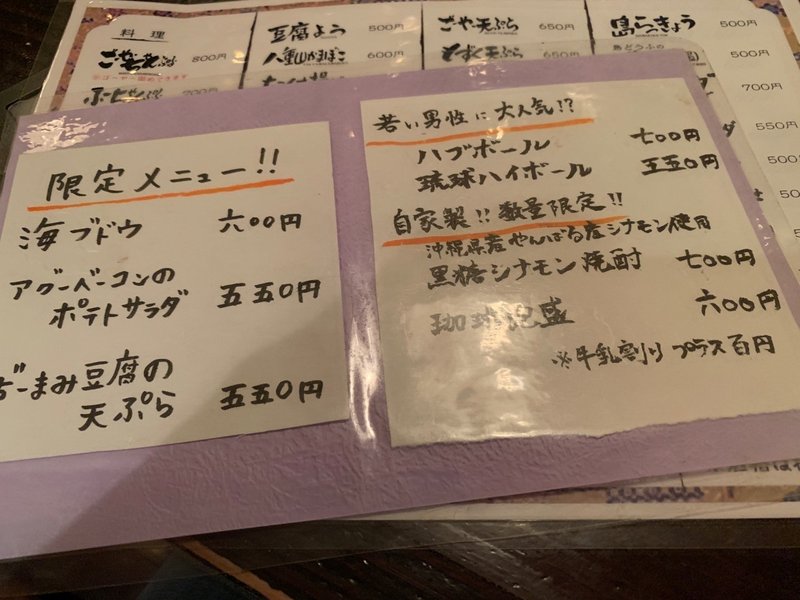 料理
豆腐よう 500円
ごや天ぷら 650円
島らっきょう 500円
800円
八重山かまぼこ 600円
もずく天ぷら 650円
島どうふの
500円
700円
700円
550円
限定メニュー!!
海ブドウ 六〇〇円
アグーベーコンの
ポテトサラダ 五五〇円
じーまみ豆腐の
天ぷら 五五〇円
若い男性に大人気!?
ハブボール 七〇〇円
琉球ハイボール 五五〇円
自家製!!数量限定!!
沖縄県産やんばる産シナモン使用
黒糖シナモン焼酎 七〇〇円
珈琲泡盛 六〇〇円
※牛乳割りプラス百円